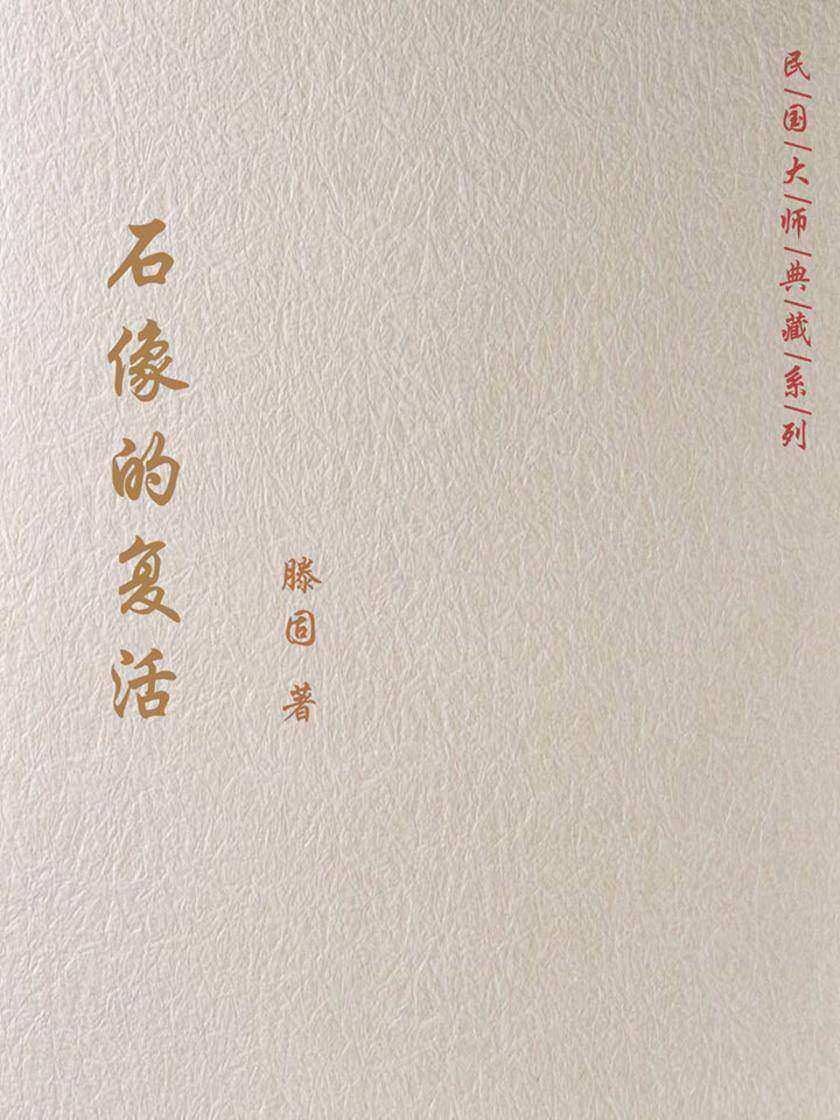 民国大师典藏系列
滕固 著
石像的复活